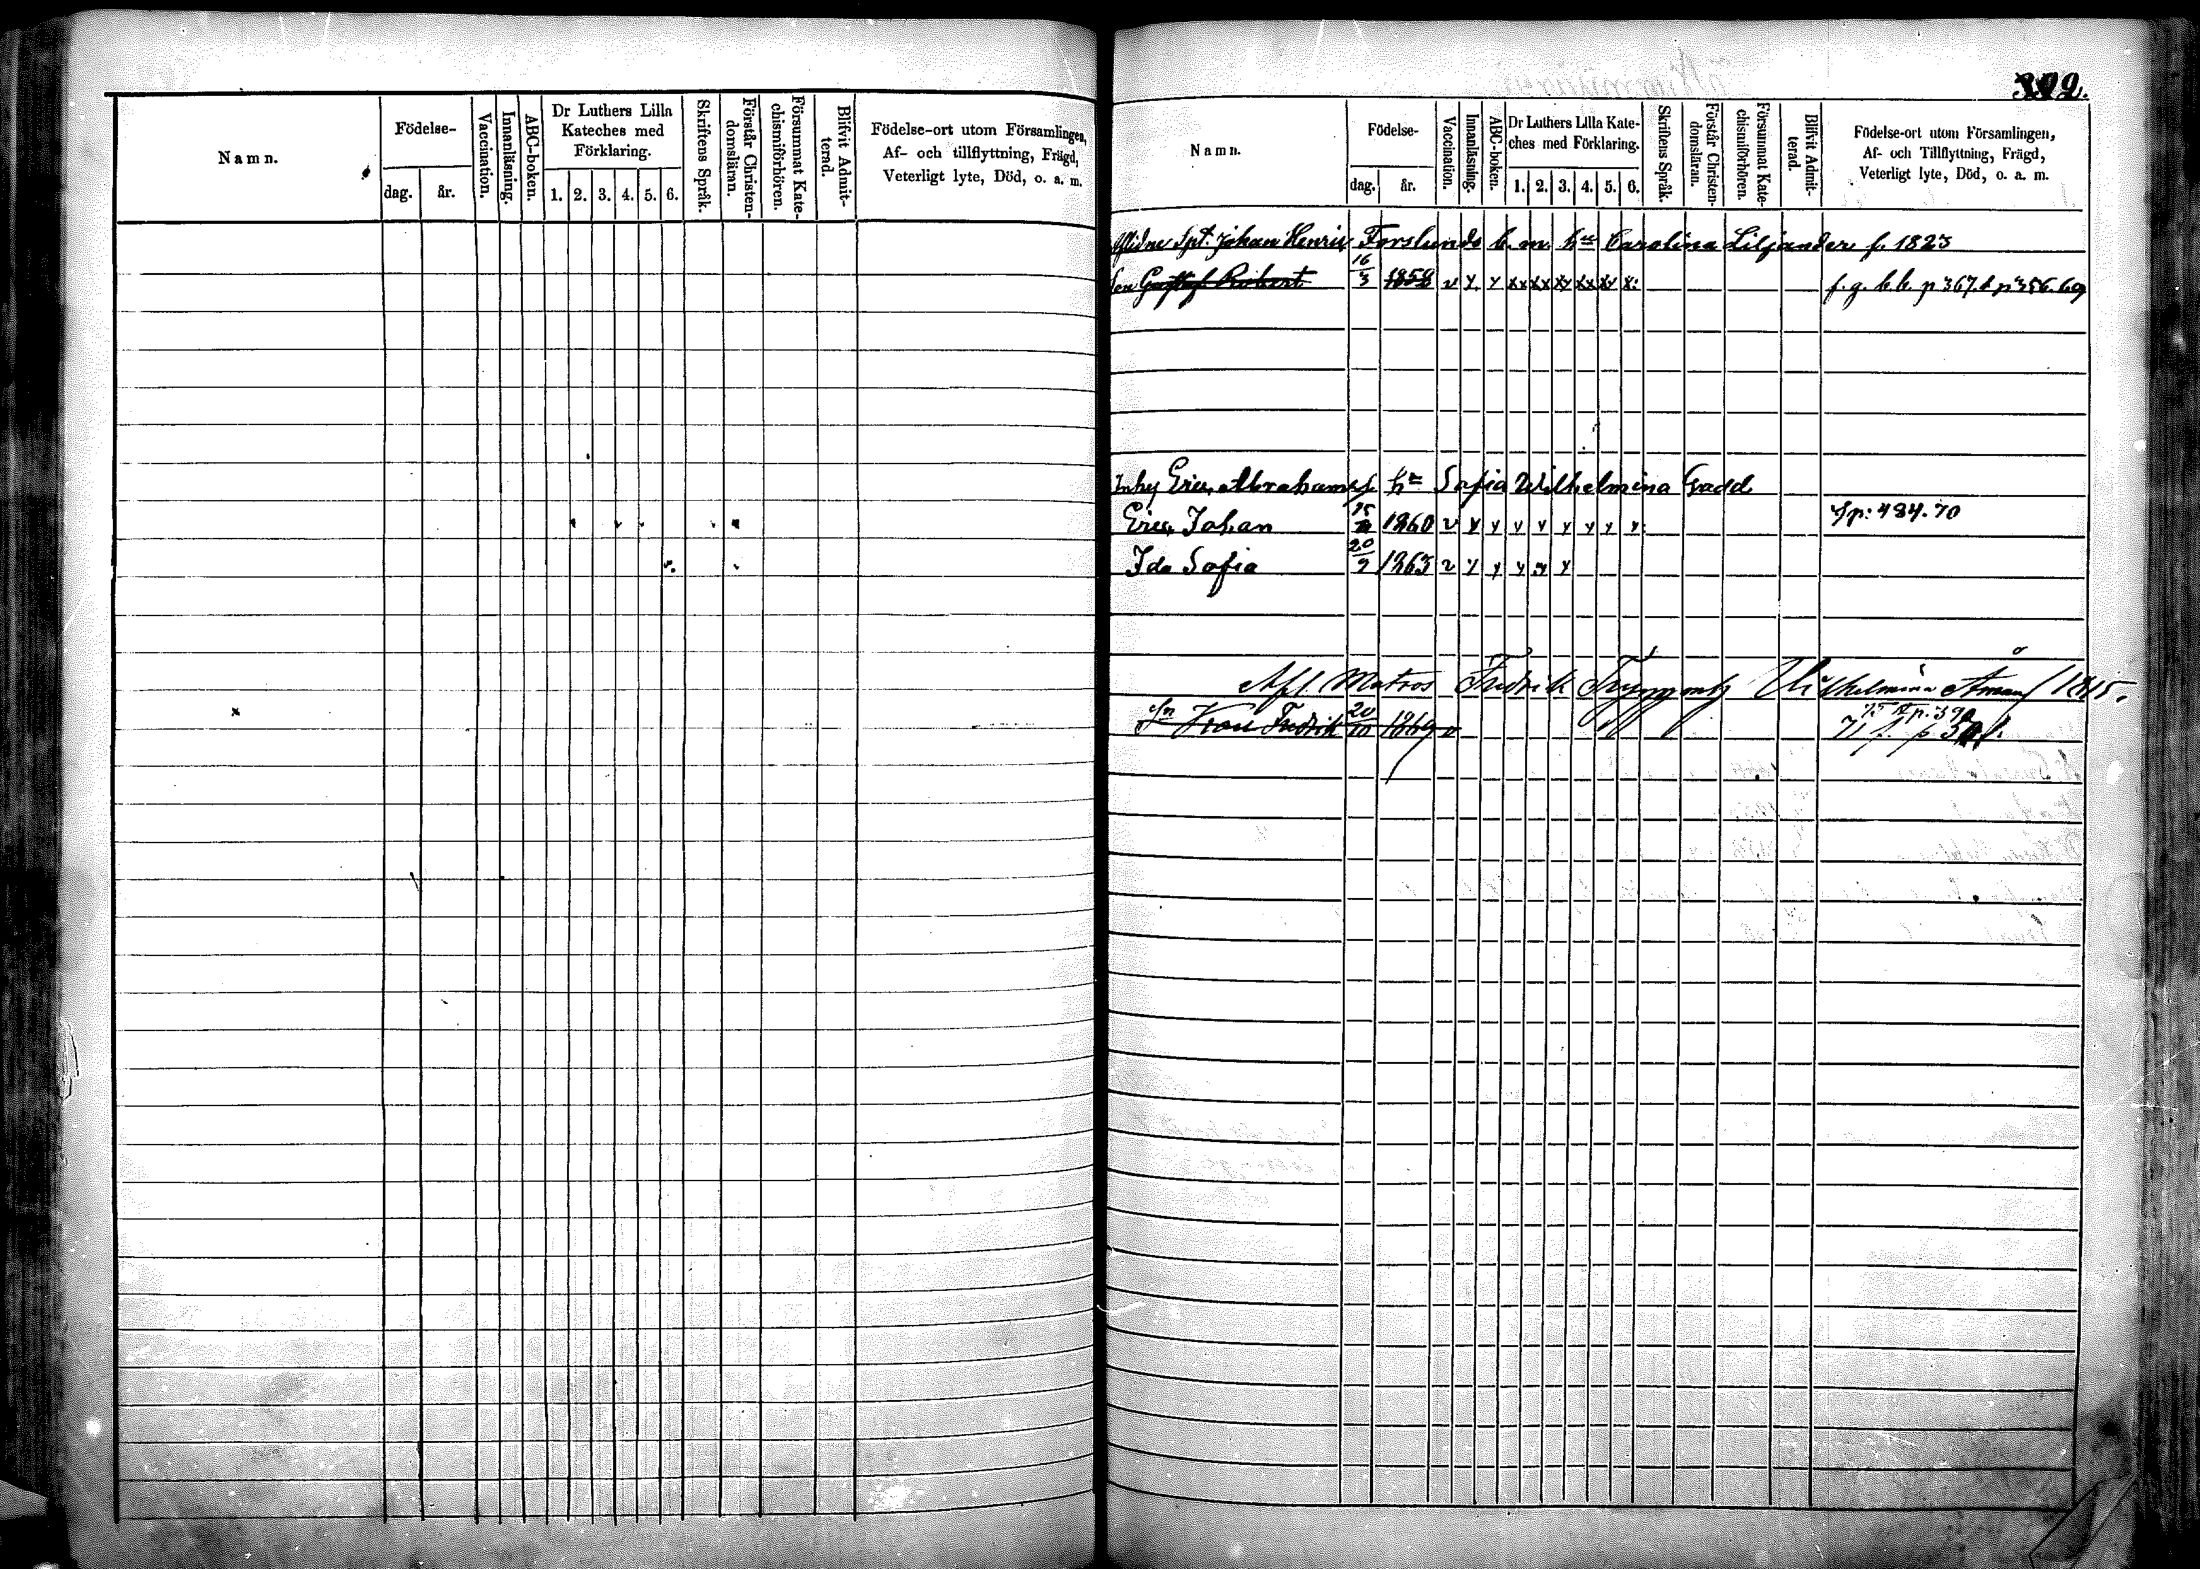 Namn.
Födelse-
dag.
år.
Vaccination.
Innanläsning.
ABC-boken.
Dr Luthers Lilla
Kateches med
Förklaring.
1. 2. 3. 4. 5. 6.
Skriftens Språk.
Förstår Christen-
domsläran.
Försummat Kate-
chismiförhören.
Blifvit Admit-
terad.
Födelse-ort utom Församlingen,
Af- och tillflyttning, Frägd,
Veterligt lyte, Död, o. a. m.
Namn.
Födelse-
dag.
år.
Vaccination.
Innanläsning.
ABC-boken.
Dr Luthers Lilla Kate-
ches med Förklaring.
1. 2. 3. 4. 5. 6.
Skriftens Språk.
Förstår Christen-
domsläran.
Försummat Kate-
chismiförhören.
Blifvit Admit-
terad.
Födelse-ort utom Församlingen,
Af- och Tillflyttning, Frägd,
Veterligt lyte, Död, o. a. m.
Johan Henric Forslunds b. m. hu Carolina Liljander f. 1823
Gustaf Robert 16/3 1858 v f. g. b. b. p 367. p 356. 69
Inhy Eric Abrahams hu Sofia Wilhelmina Gadd
Eric Johan 15 1860 v Sp: 484. 70
Ida Sofia 20/9 1863 v
Afl. Matros Fredrik Wilhelmina Åman 1845.
Sn Karl Fredrik 20/10 1869 v